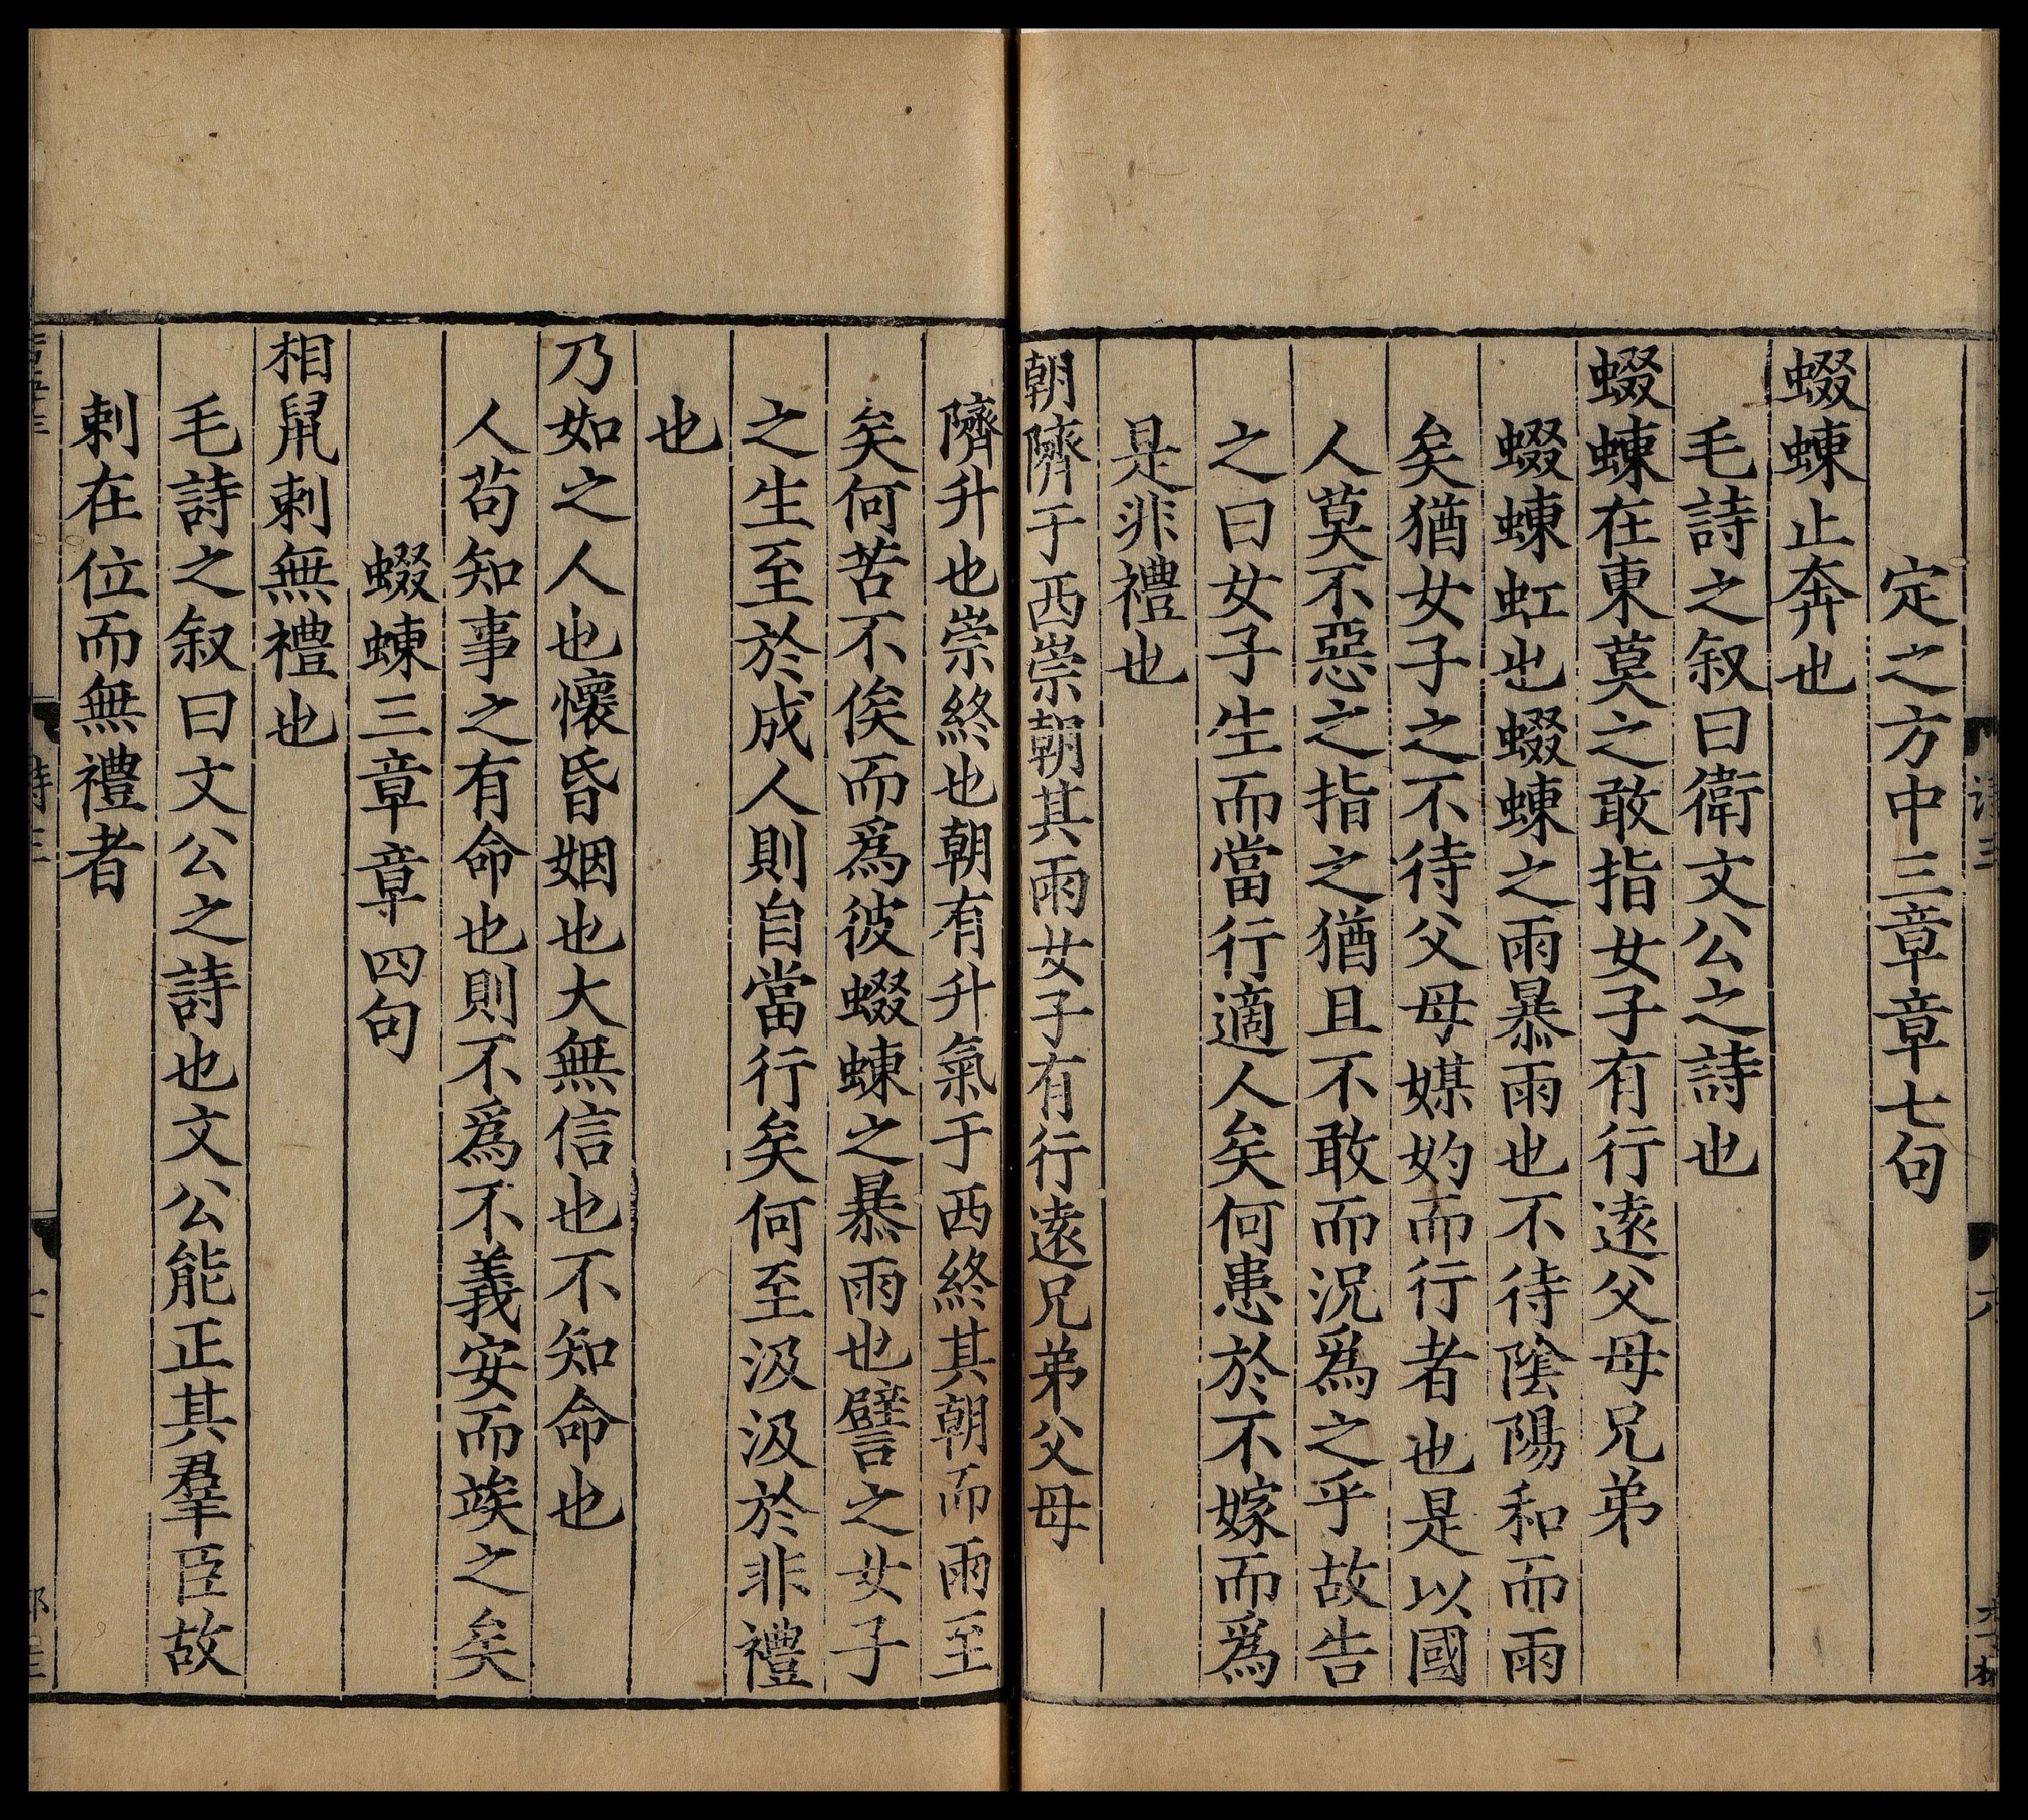 定之方中三章章七句
蝃蝀止奔也
毛詩之叙曰衛文公之詩也
蝃蝀在東莫之敢指女子有行逺父母兄弟
蝃蝀虹也蝃蝀之雨暴雨也不待隂陽和而雨
矣猶女子之不待父母媒妁而行者也是以國
人莫不惡之指之猶且不敢而況爲之乎故告
之曰女子生而當行適人矣何患於不嫁而爲
是非禮也
朝隮于西崇朝其雨女子有行逺兄弟父母
隮升也崇終也朝有升氣于西終其朝而雨至
矣何苦不俟而爲彼蝃蝀之暴雨也譬之女子
之生至於成人則自當行矣何至汲汲於非禮
也
乃如之人也懷昏姻也大無信也不知命也
人茍知事之有命也則不爲不義安而竢之矣
蝃蝀三章章四句
相鼠刺無禮也
毛詩之叙曰文公之詩也文公能正其羣臣故
刺在位而無禮者